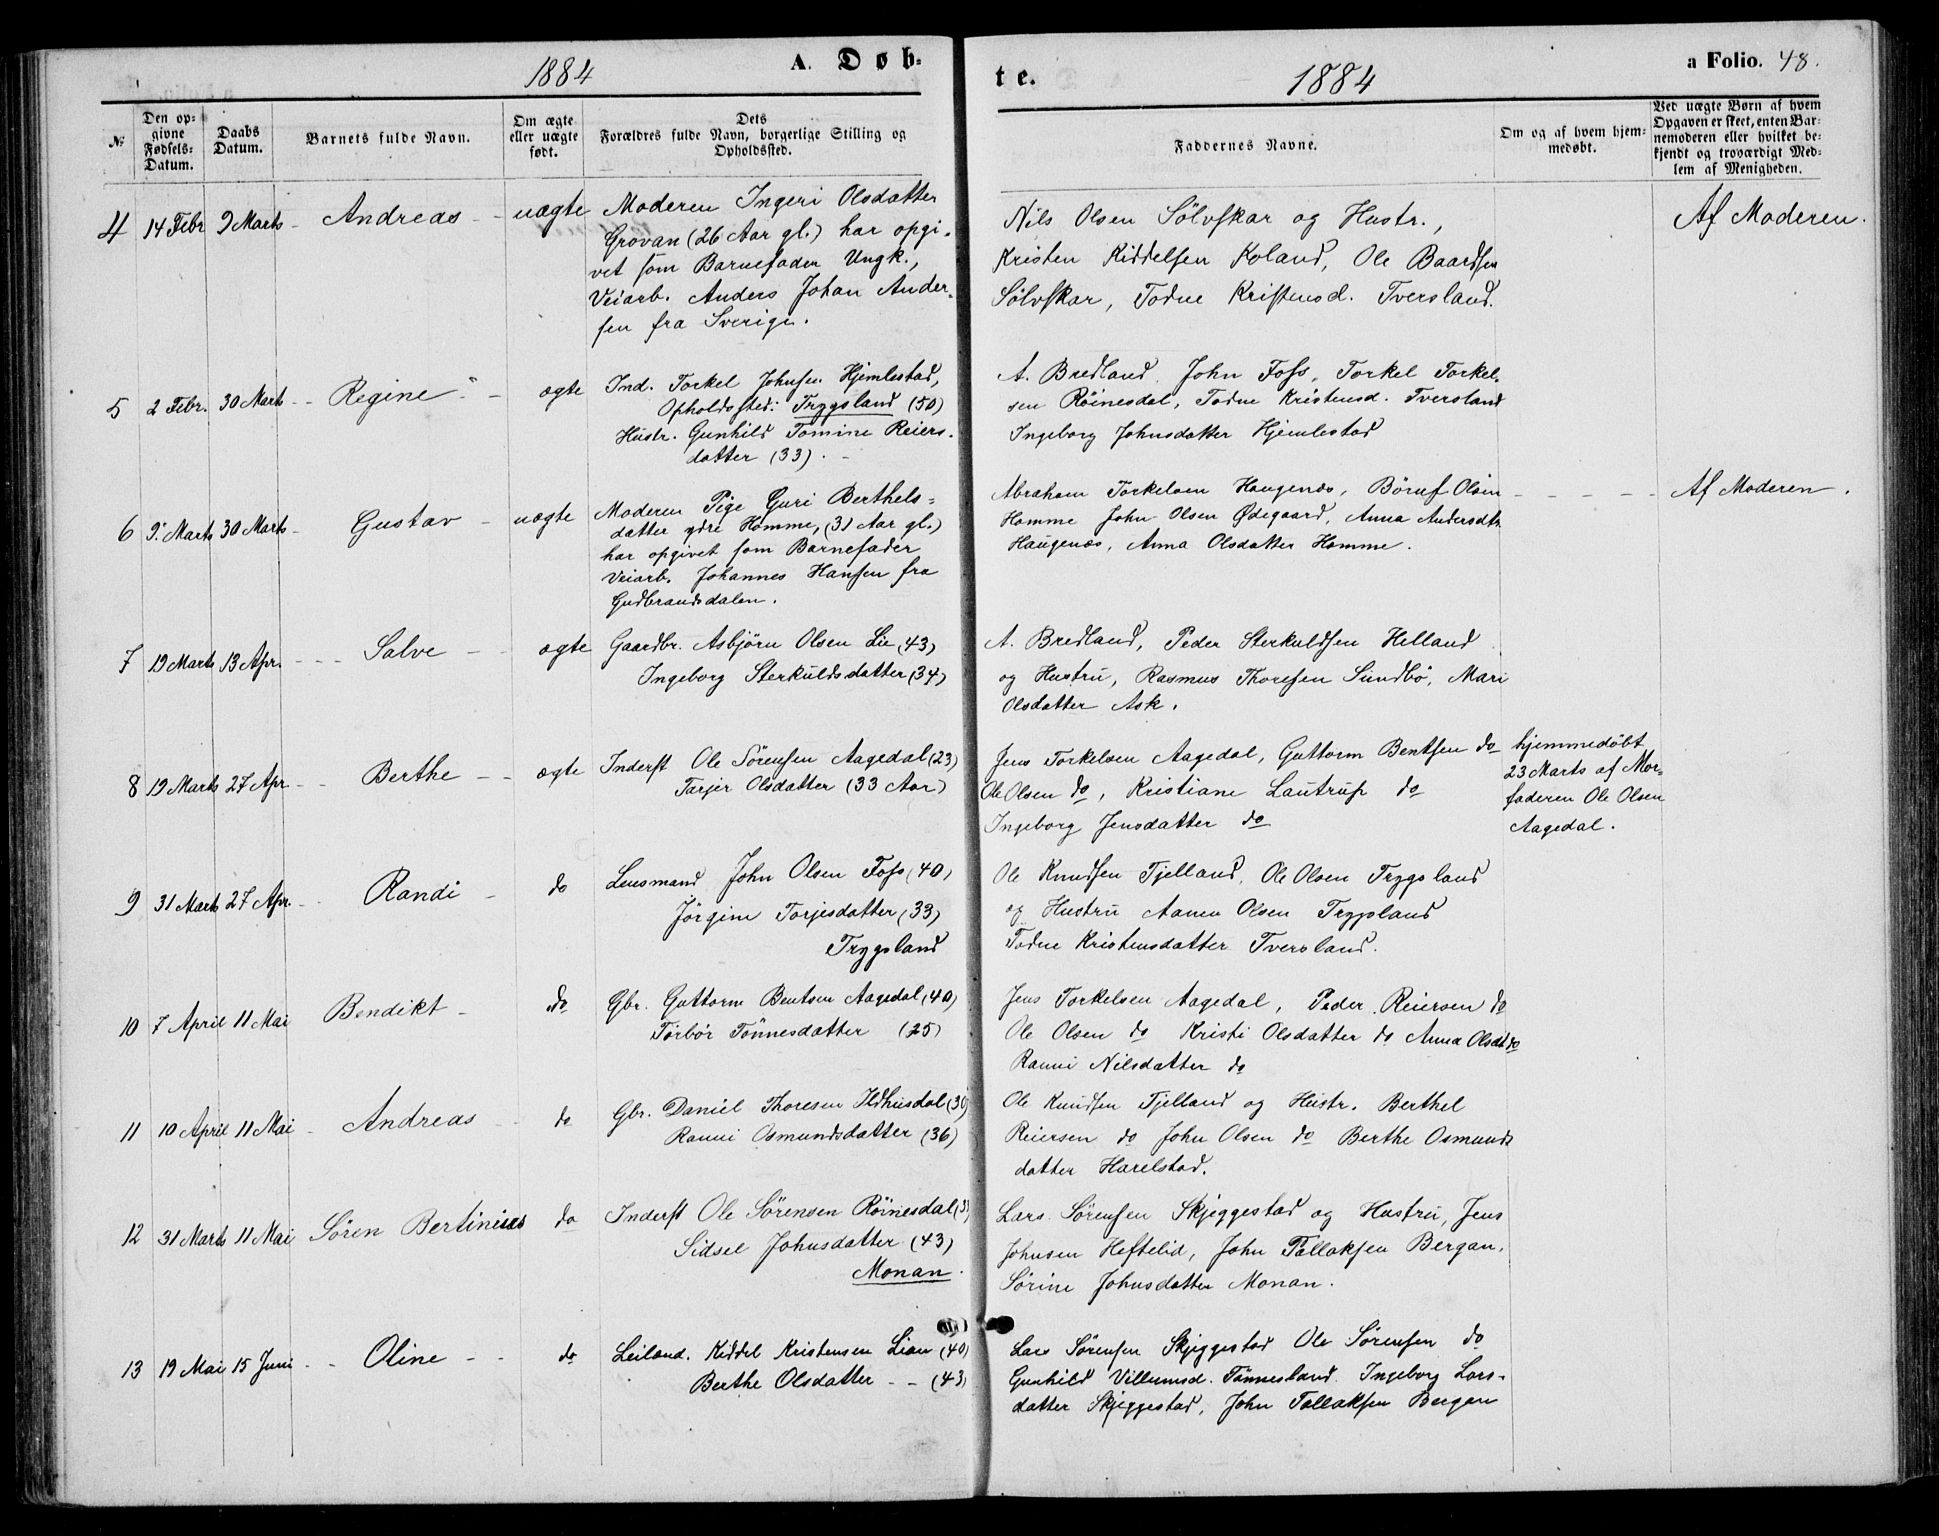 1884 A. Døb-
te. 1884 a Folio. 48.
№ Den opgivne Fødsels-Datum. Daabs Datum. Barnets fulde Navn. Om ægte eller uægte født. Dets Forældres fulde Navn, borgerlige Stilling og Opholdssted. Faddernes Navne. Om og af hvem hjemmedøbt. Ved uægte Børn af hvem Opgaven er skeet, enten Barnemoderen eller hvilket bekjendt og troværdigt Medlem af Menigheden.
4 14 Febr 9 Marts Andreas uægte Moderen Ingeri Olsdatter
Grovan (26 Aar gl.) har opgi-
vet som Barnefader Ungk.,
Veiarb. Anders Johan Ander-
sen fra Sverige.
Nils Olsen Sölvskar og Hustr.,
Kristen Kiddelsen Koland, Ole Baardsen
Sölvskar, Todne Kristensd. Tversland.
Af Moderen.
5 2 Febr. 30 Marts Regine ægte Ind. Torkel Johnsen Hjemlestad,
Opholdssted: Trygsland (50)
Hustr. Gunhild Tomine Reiers-
datter (33).
A. Bredland. John Foss, Torkel Torkel-
sen Röinesdal, Todne Kristensd. Tversland
Ingeborg Johnsdatter Hjemlestad
6 9. Marts 30 Marts Gustav uægte Moderen Pige Guri Berthels-
datter ydre Homme, (31 Aar gl.)
har opgivet som Barnefader
Veiarb. Johannes Hansen fra
Gudbrandsdalen.
Abraham Torkelsen Haugenæs, Böruf Olsen
Homme John Olsen Ødegaard, Anna Andersdtr.
Haugenæs, Anna Olsdatter Homme.
Af Moderen.
7 19 Marts 13 Apr. Salve ægte Gaardbr. Asbjörn Olsen Lie (43)
Ingeborg Sterkuldsdatter (34)
A. Bredland, Peder Sterkuldsen Helland
og Hustru, Rasmus Thoresen Sundbö, Mari
Olsdatter Ask.
8 19 Marts 27 Apr. Berthe ægte Inderst Ole Sörensen Aagedal (23)
Tarjer Olsdatter (33 Aar)
Jens Torkelsen Aagedal, Guttorm Bentsen do
Ole Olsen do, Kristiane Lautrup do
Ingeborg Jensdatter do
hjemmedöbt
23 Marts af Mor-
faderen Ole Olsen
Aagedal.
9 31 Marts 27 Apr. Randi do Lensmand John Olsen Foss (40)
Jörgine Torjesdatter (33)
Trygsland
Ole Knudsen Tjelland, Ole Olsen Trygsland
og Hustru Aanen Olsen Trygsland
Todne Kristensdatter Tversland.
10 7 April 11 Mai Bendikt do Gbr. Guttorm Bentsen Aagedal (40)
Torbör Tönnesdatter (25)
Jens Torkelsen Aagedal, Peder Reiersen do
Ole Olsen do Kristi Olsdatter do Anna Olsdt do
Ranni Nilsdatter do
11 10 April 11 Mai Andreas do Gbr. Daniel Thoresen Ildhusdal (30)
Ranni Osmundsdatter (36)
Ole Knudsen Tjelland og Hustr. Berthel
Reiersen do John Olsen do Berthe Osmunds
datter Harelstad.
12 31 Marts 11 Mai Sören Bertinius do Inderst Ole Sörensen Röinesdal
Sidsel Johnsdatter (43)
Monan.
Lars Sörensen Skjeggestad og Hustru, Jens
Johnsen Heftelid, John Tallaksen Bergan,
Sörine Johnsdatter Monan.
13 19 Mai 15 Juni Oline do Leiland. Kiddel Kristensen Lian (40)
Berthe Olsdatter (43)
Lars Sörensen Skjeggestad Ole Sörensen do
Gunhild Villumsd. Tönnesland. Ingeborg Lars-
datter Skjeggestad, John Tallaksen Bergan